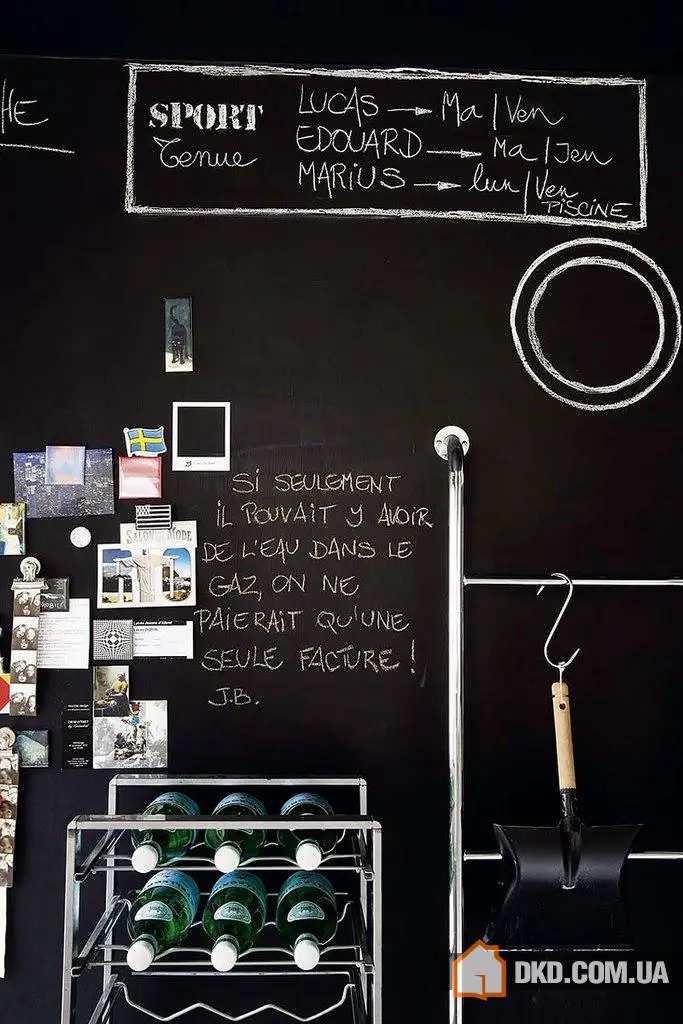 HE
SPORT
Tenue
LUCAS → Ma | Ven
EDOUARD → Ma | Jeu
MARIUS → lun | Ven
PISCINE
SI SEULEMENT
IL POUVAIT Y AVOIR
DE L'EAU DANS LE
GAZ, ON NE
PAIERAIT QU'UNE
SEULE FACTURE !
J.B.
MOBILE
DKD.COM.UA